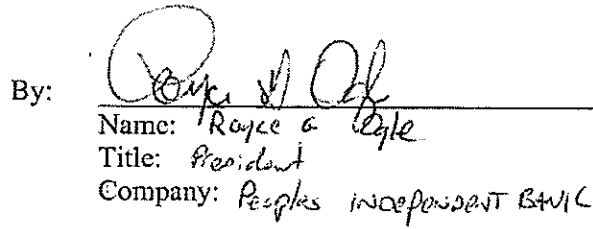 By: Royce G Ogle
Name: Royce G Ogle
Title: President
Company: Peoples INDEPENDENT BANK